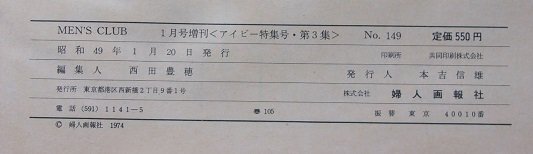 MEN'S CLUB 1月号増刊<アイビー特集号・第3集> No. 149 定価 550円
昭和 49年 1月 20日 発行 印刷所 共同印刷株式会社
編集人 西田豊穂 発行人 本吉信雄
発行所 東京都港区西新橋2丁目9番1号 株式会社 婦人画報社
電話 (591) 1141−5 巻 105 振替 東京 40010番
© 婦人画報社 1974